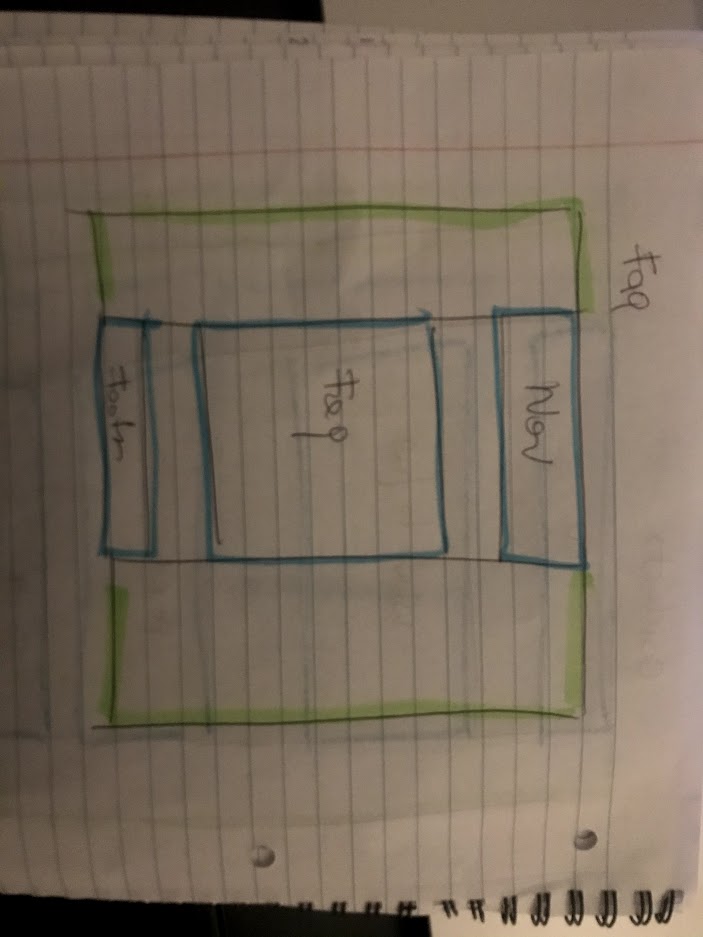 Faq
Nav
Faq
Footer